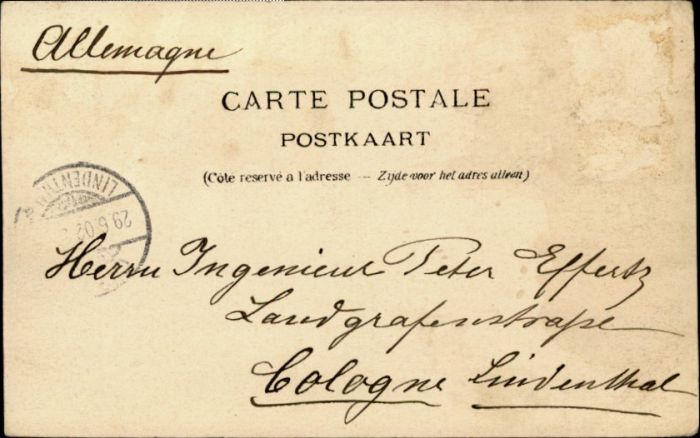 Allemagne
CARTE POSTALE
POSTKAART
(Côte reservé a l'adresse — Zijde voor het adres alleen)
LINDENTHAL
29.6.02
Herrn Ingenieur Peter Effertz
Landgrafenstraße
Cologne Lindenthal